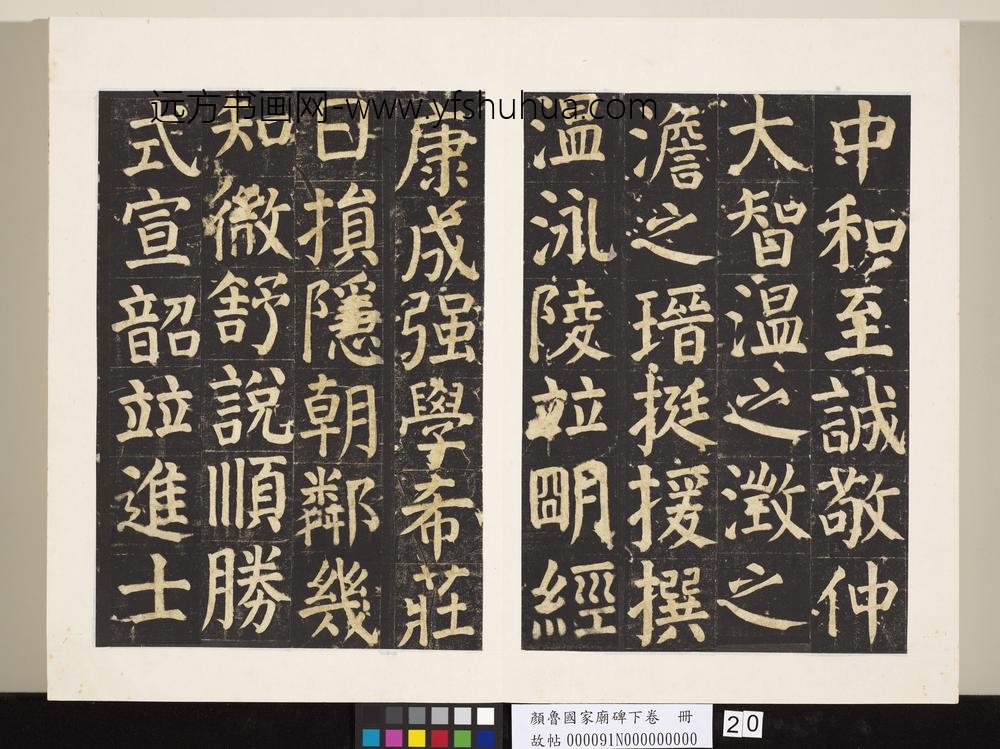 远方书画网-www.yfshuhua.com
中和至誠敬仲
大智温之澂之
澹之瑨挺援撰
温泳陵竝明經
康成强學希莊
日損隱朝鄰幾
知微舒說順勝
式宣韶竝進士
顏魯國家廟碑下卷 冊
故帖 000091N000000000
20